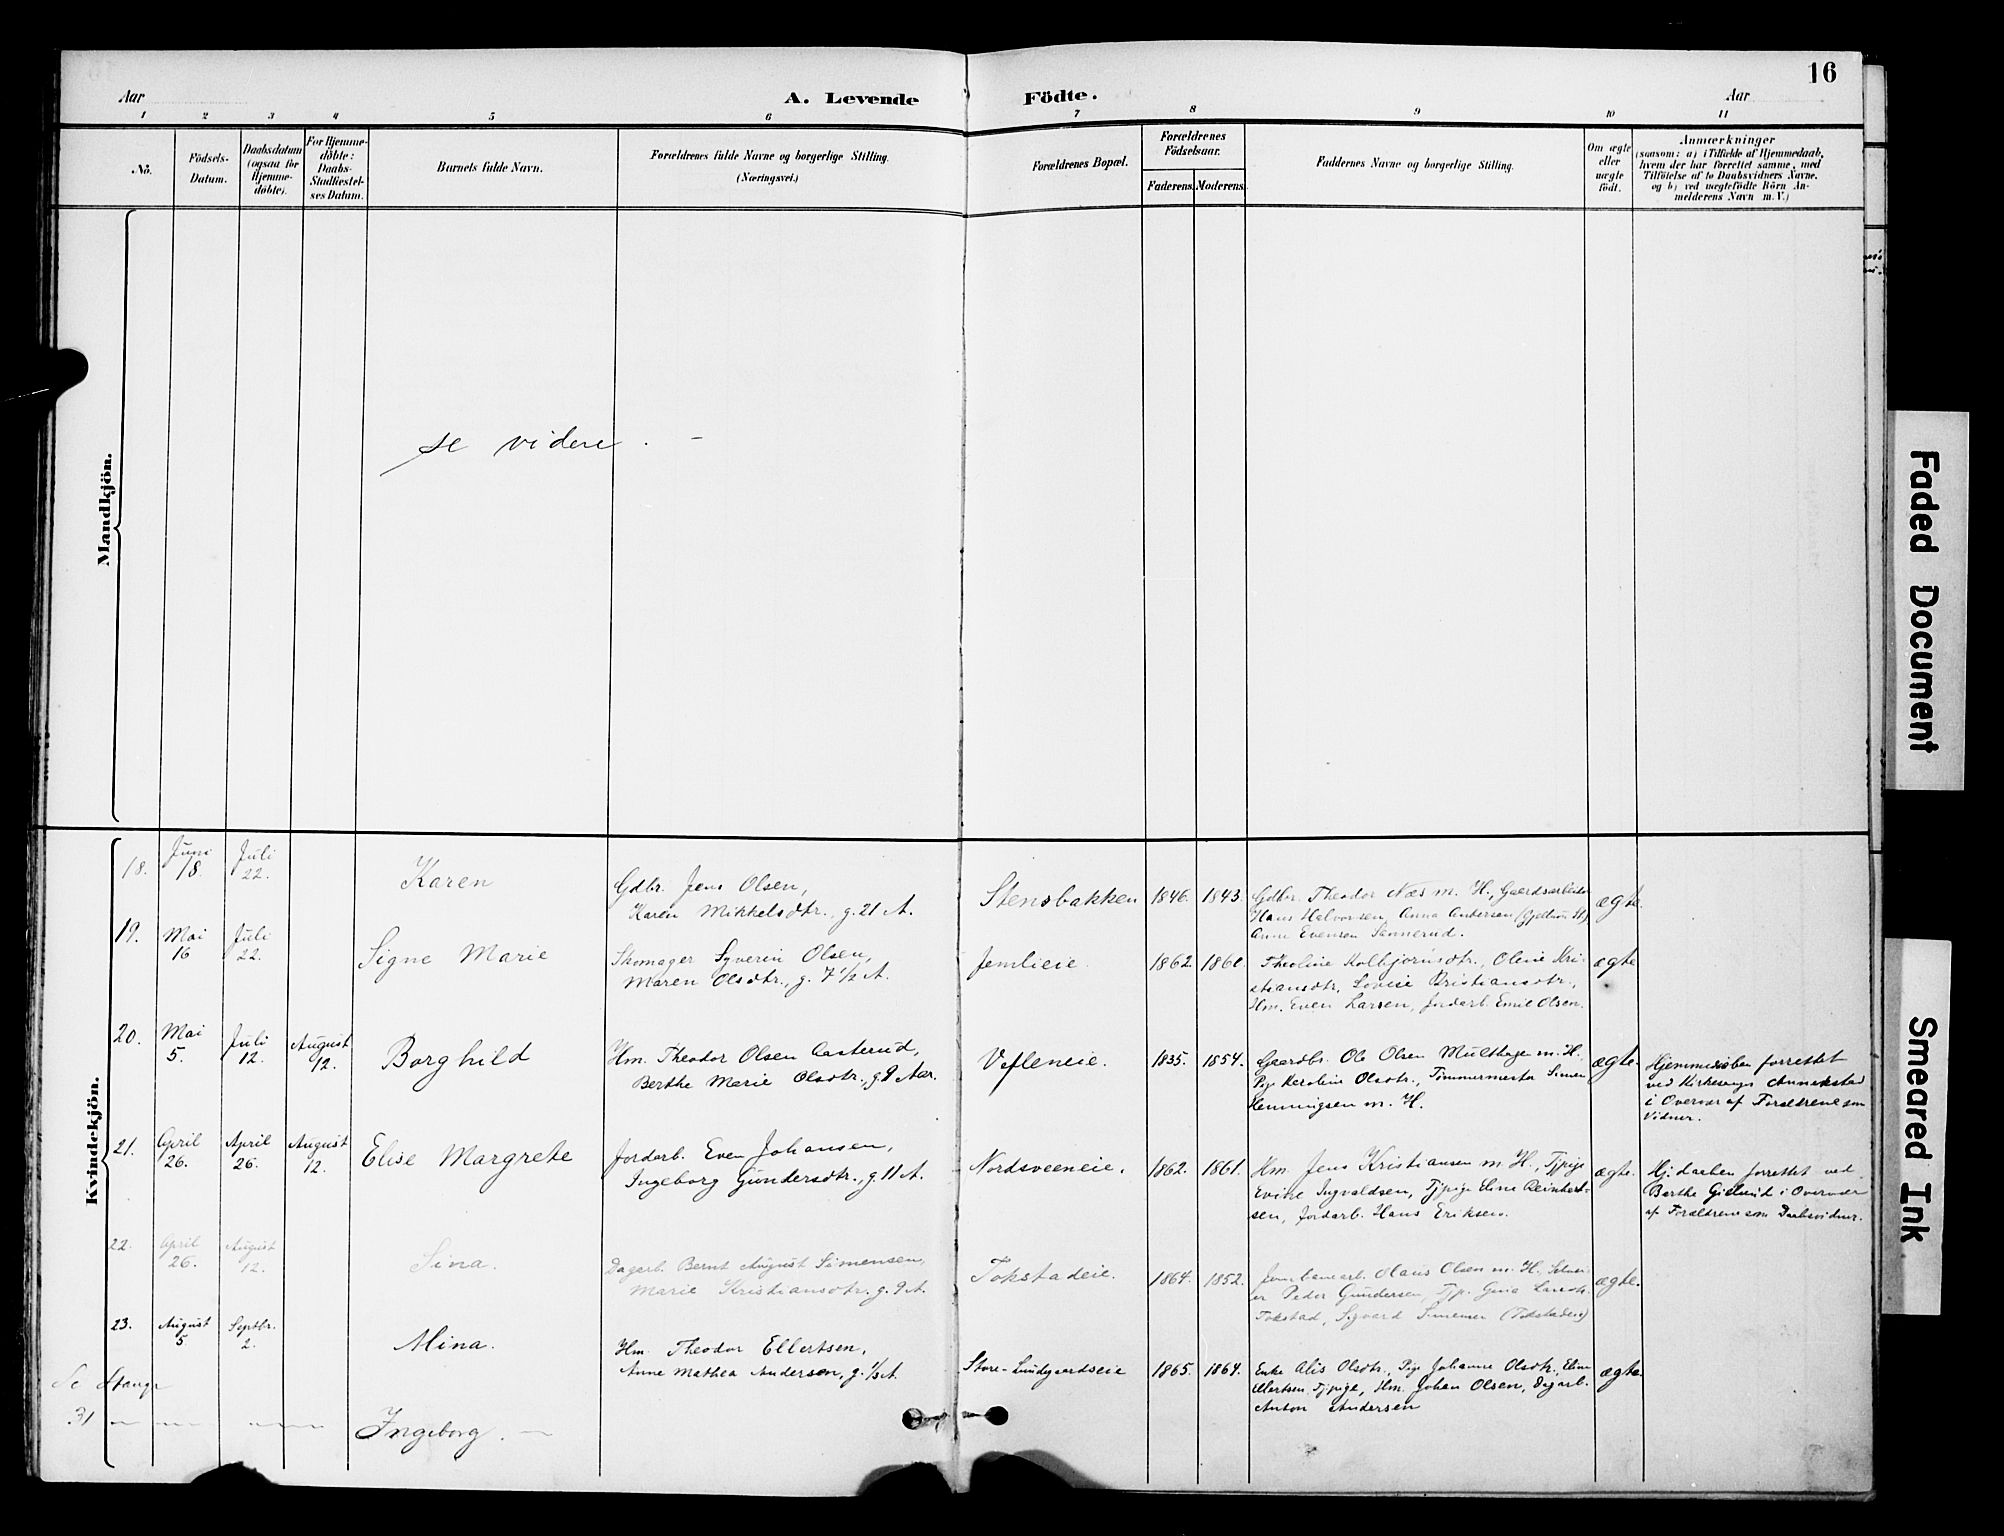 16
Aar
A. Levende
Födte.
Aar
1 2 3 4 5 6 7 8 9 10 11
No.
Födsels-
Datum.
Daabsdatum
(ogsaa for
Hjemme-
döbte).
For Hjemme-
döbte:
Daabs-
Stadfæstel-
ses Datum.
Barnets fulde Navn.
Forældrenes fulde Navne og borgerlige Stilling.
(Næringsvei.)
Forældrenes Bopæl.
Forældrenes
Födselsaar.
Faderens.
Moderens.
Faddernes Navne og borgerlige Stilling.
Om ægte
eller
uægte
födt.
Anmærkninger
(saasom: a) i Tilfælde af Hjemmedaab,
hvem der har forrettet samme, med
Tilföielse af to Daabsvidners Navne.
og b) ved uægtefödte Börn An-
melderens Navn m. V.)
Mandkjön.
se videre . -
Kvindekjön.
18.
Juni
18.
Juli
22.
Karen
Gdbr. Jens Olsen,
Karen Mikkelsdtr., g. 21 A.
Stensbakken
1846.
1843.
Gdbr. Theodor Næs m. H., Gaardsarbeider
Hans Halvorsen, Anna Andersen
Anne Evensen Sannerud.
ægte.
19.
Mai
16
Juli
22.
Signe Marie
Skomager Syverin Olsen,
Maren Olsdtr., g. 7 1/2 A.
Jemlieie
1862.
Theoline Kolbjørnsdtr., Oline Kri-
stiansdtr, Lovise Kristiansdtr.,
Hm. Even Larsen, Jordarb. Emil Olsen.
ægte
20.
Mai
5.
Juli
12.
August
12.
Borghild
Hm. Theodor Olsen Casterud,
Berthe Marie Olsdtr., g. 9 Aar.
Vefleneie.
1835.
1854.
Gaardbr. Ole Olsen Multhagen m. H.
Pige Karoline Olsdtr., Tømmermester Simen
Henningsen m. H.
ægte.
Hjemmedaaben forrettet
ved Kirkesanger Annekstad
i Overvær af Forældrene som
Vidner.
21.
April
26.
April
26.
August
12.
Elise Margrete
Jordarb. Even Johansen,
Ingeborg Gundersdtr., g. 11 A.
Nordsveeneie.
1862.
1861.
Hm. Jens Kristiansen m. H., Tjpige
Evine Ingvaldsen, Tjpige Eline Reinhert-
sen, Jordarb. Hans Eriksen.
ægte.
Hj: daaben forrettet ved
Berthe Gielund i Overvær
af Forældrene som Daabsvidner.
22.
April
26.
August
12.
Sina.
Dagarb. Bernt August Simensen,
Marie Kristiansdtr. g. 9 A.
Tokstadeie.
1864.
1852.
Jernbanearb. Olaus Olsen m. H.,
er Peder Gundersen, Tjp. Gina Larsdtr.
Tokstad, Sigvard Simensen (Tokstadeie)
ægte.
23.
August
5
Septbr.
2.
Mina.
Hm. Theodor Ellertsen,
Anne Mathea Andersen, g. 1/3 A.
Store-Lundgaardseie
1865.
1864.
Enke Alis Olsdtr., Pige Johanne Olsdtr., Eline
Ellertsen Tjpige, Hm. Johan Olsen, Dagarb.
Anton Andersen
ægte.
Se Stange
31 — — —
Ingeborg. —
Faded Document
Smeared Ink